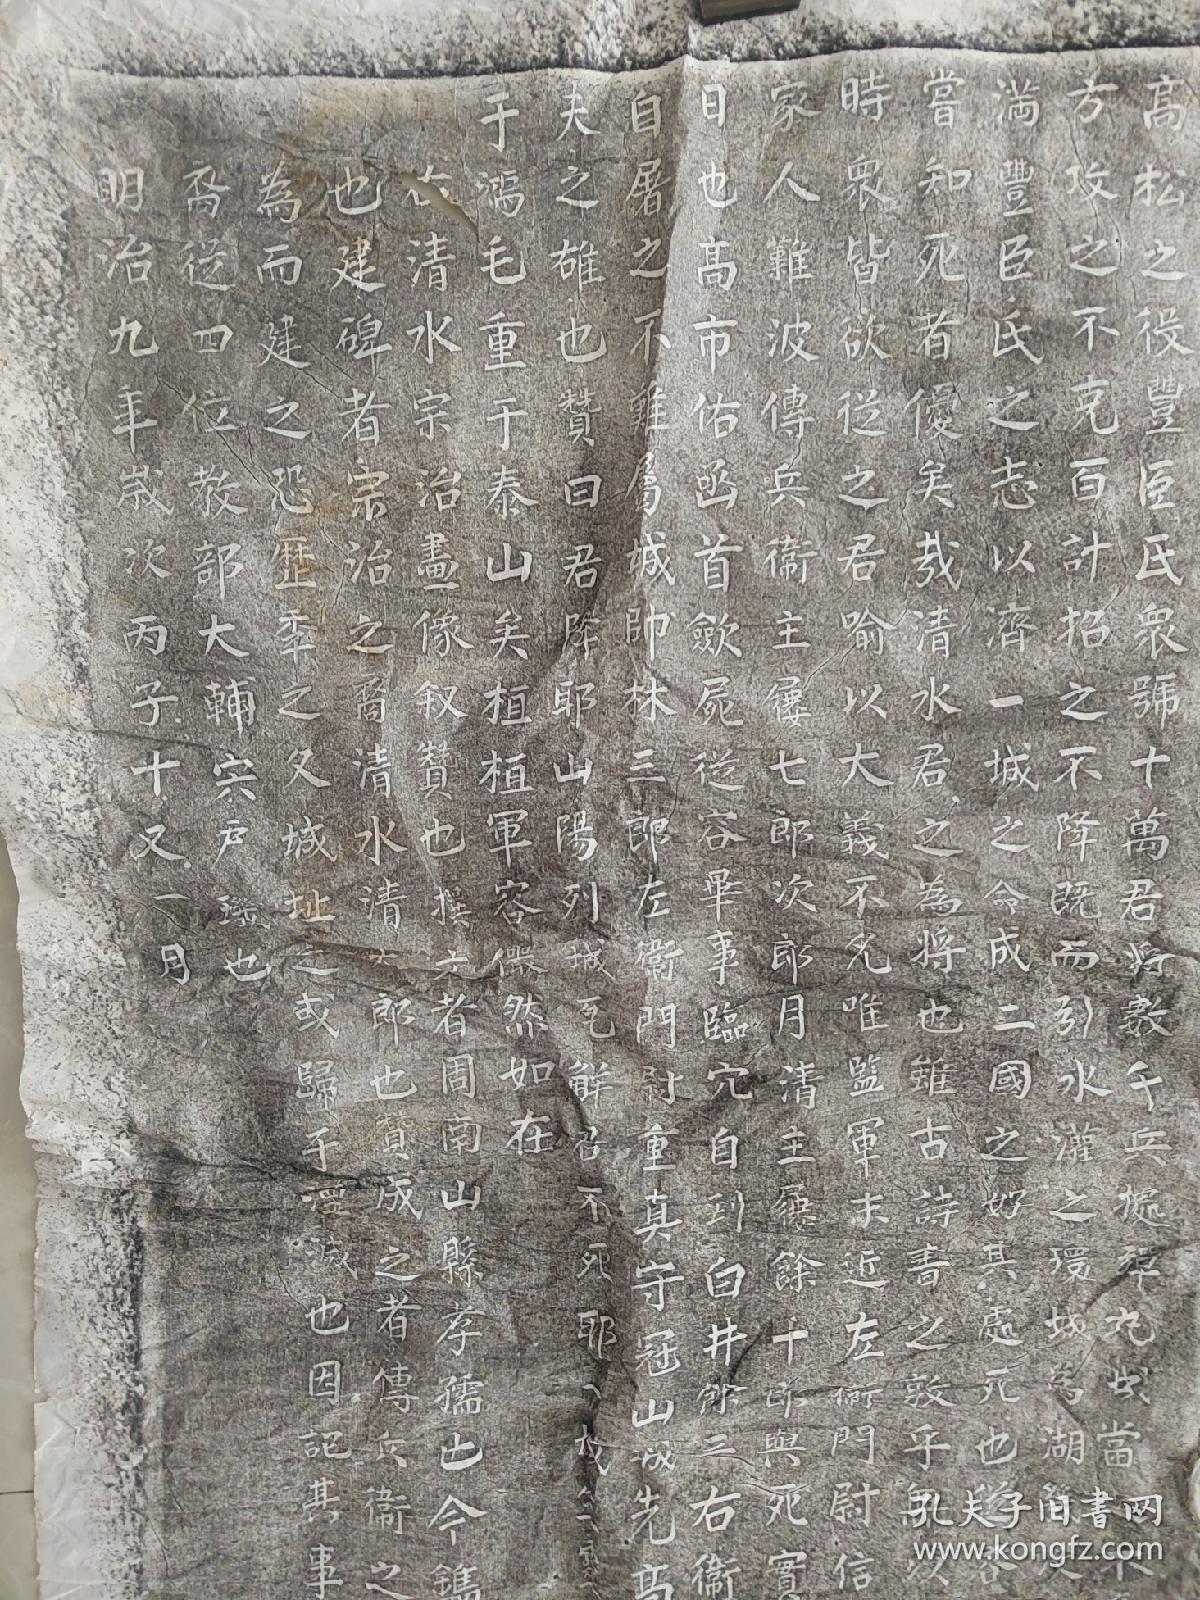 高松之役豊臣氏衆號十萬君將數千兵據弾丸城當
方攻之不克百計招之不降既而引水灌之環城為湖
満豊臣氏之志以濟一城之令成二國之好其處死也
嘗知死者優矣哉清水君之為將也雖古詩書之敦乎
時衆皆欲従之君喻以大義不允唯監軍末近左衛門尉信
家人難波傳兵衛主僂七郎次郎月清主僂餘十郎與死實
日也髙市佑函首歛屍従容畢事臨穴自刭白井餘三右衛
自屠之不難屬城帥林三郎左衛門尉重真守冠山城先髙
夫之雄也贊曰君降耶山陽列城瓦解君不死耶
于鴻毛重于泰山矣植植軍容儼然如在
右清水宗治畫像叙贊也撰文者周南山縣孝孺也今鐫
也建碑者宗治之裔清水清太郎也賛成之者傳兵衛之
為而建之恐歴年之久城址之或歸于堙滅也因記其事
裔従四位教部大輔宍戸璣也
明治九年歳次丙子十又一月
孔夫子旧书网
www.kongfz.com